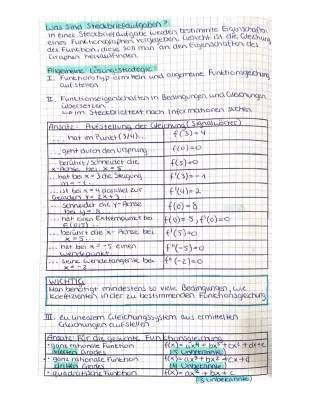 Was sind Steckbriefaufgaben?
In einer Steckbriefaufgabe werden bestimmte Eigenschaften
eines Funktionsgraphen vorgegeben. Gesucht ist die Gleichung
der Funktion, diese soll man an den Eigenschaften des
Graphen herausfinden.
Allgemeine Lösungsstrategie:
I. Funktionstyp ermitteln und allgemeine Funktionsgleichung
aufstellen
II. Funktionseigenschaften in Bedingungen und Gleichungen
übersetzen
↳ im Steckbrieftext nach Informationen suchen
Ansatz - Aufstellung der Gleichung (Signalwörter)
... hat im Punkt (3/4)... f(3)=4
... geht durch den Ursprung f(0)=0
... berührt/schneidet die
x-Achse bei x=5 f(5)=0
... hat bei x=3 die Steigung
m=-1 f'(3)=-1
... ist bei x=4 parallel zur
Geraden y=2x+3 f'(4)=2
... schneidet die y-Achse
bei y=8 f(0)=8
... hat einen Extrempunkt bei
E(0/5) f(0)=5, f'(0)=0
... berührt die x-Achse bei
x=5 ... f'(5)=0
... hat bei x=-5 einen
Wendepunkt f"(-5)=0
... seine Wendetangente bei
x=-2 f"(-2)=0
WICHTIG:
Man benötigt mindestens so viele Bedingungen, wie
Koeffizienten in der zu bestimmenden Funktionsgleichung
III. Zu linearem Gleichungssystem aus ermittelten
Gleichungen aufstellen
Ansatz: Für die gesuchte Funktionsgleichung
• ganzrationale Funktion f(x)=ax⁴+bx³+cx²+dx+e
vierten Grades (5 Unbekannte)
• ganzrationale Funktion f(x)=ax³+bx²+cx+d
dritten Grades (4 Unbekannte)
• quadratische Funktion f(x)=ax²+bx+c
(3 Unbekannte)